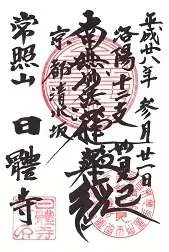 平成廿八年 参月廿一日
洛陽十二支 妙見 巳
南無妙法蓮華経
京都清水坂
常照山 日體寺